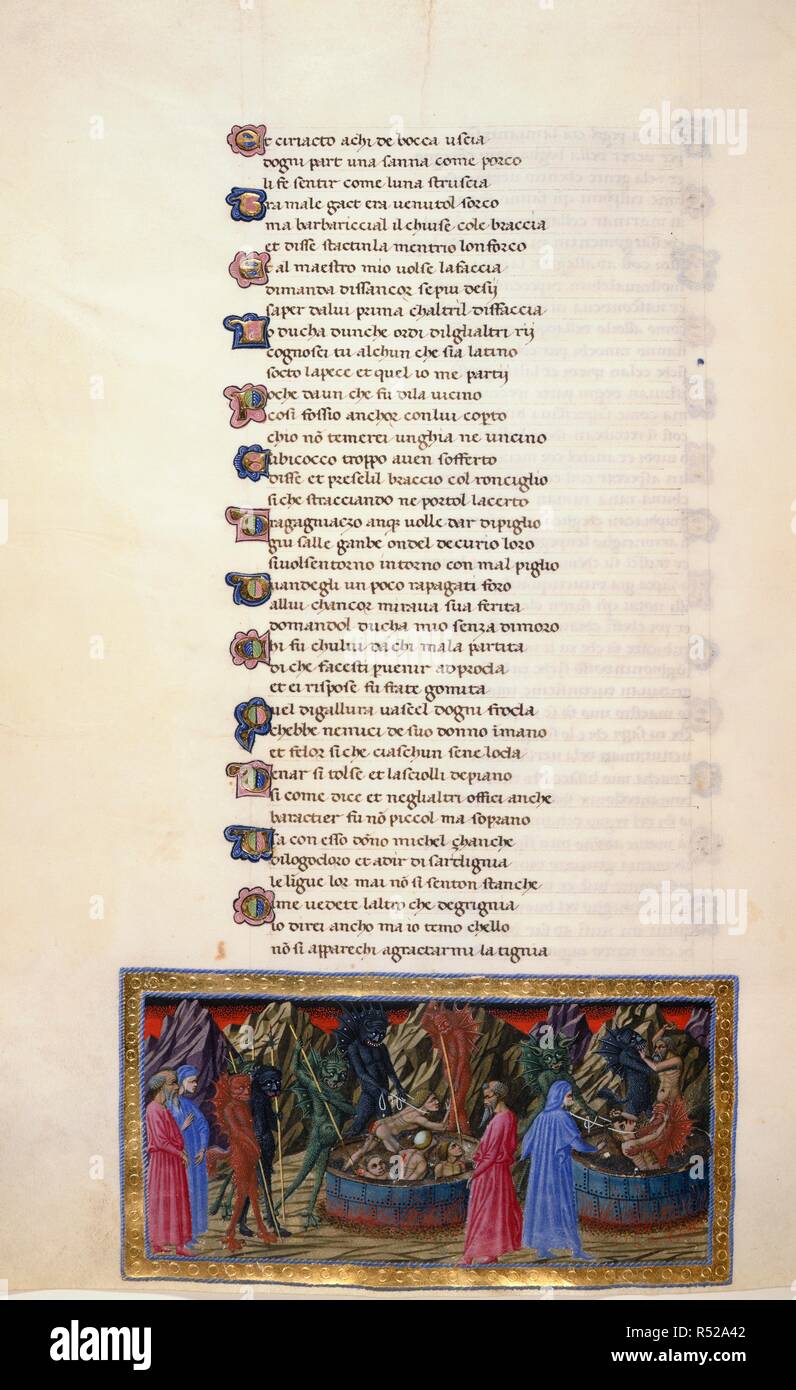 Et ciriacto achi de bocca uscia
dogni part una sanna come porco
li fe sentir come luna struscia
Tra male gact era uenutol sorco
ma barbariccial il chiuse cole braccia
et disse stactinla mentrio lonforco
Et al maestro mio uolse lafaccia
dimanda dissancor sepiu desij
saper dalui prima chaltril disfaccia
Lo ducha dunche ordi dilglialtri rij
cognosci tu alchun che sia latino
socto lapece et quel io me partij
Poche daun che fu dila uicino
cosi fossio anchor conlui coperto
chio nõ temerei unghia ne uncino
Libicocco troppo auen sofferto
disse et preselil braccio col ronciglio
si che stracciando ne portol lacerto
Dragagniaczo anq; uolle dar dipiglio
giu salle ganbe ondel decurio loro
siuolsentorno intorno con mal piglio
Quandegli un poco rapagati foro
allui chancor miraua sua ferita
domandol ducha mio senza dimoro
Chi fu chului da chi mala partita
di che facesti puenir adproda
et ei rispose fu frate gomita
Quel digallura uasel dogni froda
chebbe nemici de suo donno ĩmano
et felor si che ciaschun sene loda
Denar si tolse et lasciolli depiano
si come dice et neglialtri offici anche
baractier fu nõ piccol ma soprano
Usa con esso dõno michel çhanche
dilogodoro et adir di sardignia
le lĩgue lor mai nõ si senton stanche
Ome uedete laltro che degrignia
io direi ancho ma io temo chello
nõ si apparechi agractarmi la tignia
alamy
alamy
Image ID: R52A42
www.alamy.com